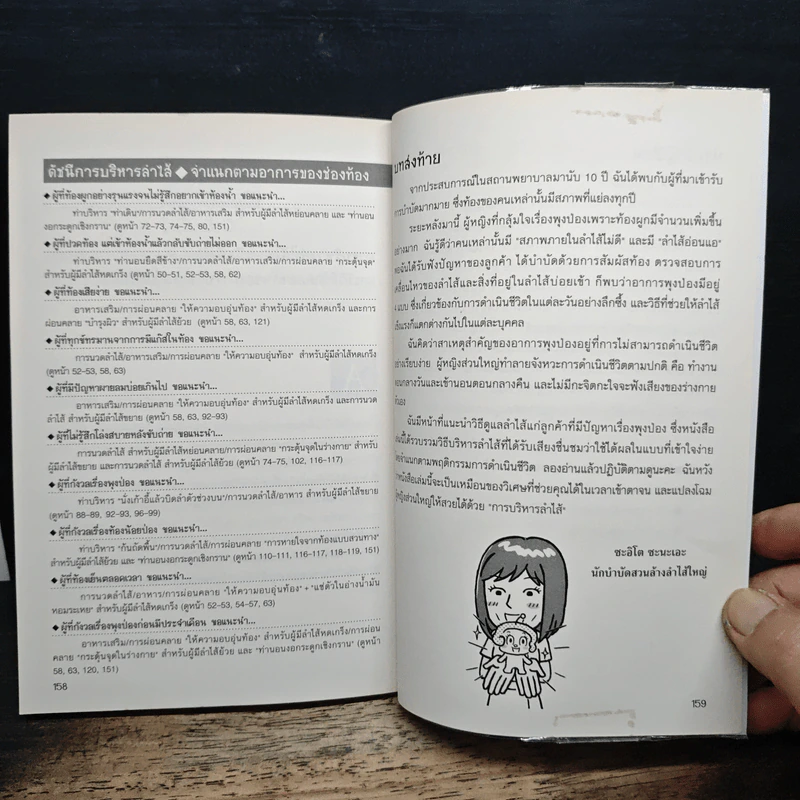 ดัชนีการบริหารลำไส้ ◆ จำแนกตามอาการของช่องท้อง
◆ ผู้ที่ท้องผูกอย่างรุนแรงจนไม่รู้สึกอยากเข้าห้องน้ำ ขอแนะนำ...
ท่าบริหาร "ท่าเดิน"/การนวดลำไส้/อาหารเสริม สำหรับผู้มีลำไส้หย่อนคลาย และ "ท่านอน
งอกระดูกเชิงกราน" (ดูหน้า 72-73, 74-75, 80, 151)
◆ ผู้ที่ปวดท้อง แต่เข้าห้องน้ำแล้วกลับขับถ่ายไม่ออก ขอแนะนำ...
ท่าบริหาร "ท่านอนยืดสีข้าง"/การนวดลำไส้/อาหารเสริม/การผ่อนคลาย "กระตุ้นจุด"
สำหรับผู้มีลำไส้หดเกร็ง (ดูหน้า 50-51, 52-53, 58, 62)
◆ ผู้ที่ท้องเสียง่าย ขอแนะนำ...
อาหารเสริม/การผ่อนคลาย "ให้ความอบอุ่นท้อง" สำหรับผู้มีลำไส้หดเกร็ง และการ
ผ่อนคลาย "บำรุงผิว" สำหรับผู้มีลำไส้ย้วย (ดูหน้า 58, 63, 121)
◆ ผู้ที่ทุกข์ทรมานจากการมีแก๊สในท้อง ขอแนะนำ...
การนวดลำไส้/อาหารเสริม/การผ่อนคลาย "ให้ความอบอุ่นท้อง" สำหรับผู้มีลำไส้หดเกร็ง
(ดูหน้า 52-53, 58, 63)
◆ ผู้ที่มีปัญหาผายลมบ่อยเกินไป ขอแนะนำ...
อาหารเสริม/การผ่อนคลาย "ให้ความอบอุ่นท้อง" สำหรับผู้มีลำไส้หดเกร็ง และการนวด
ลำไส้ สำหรับผู้มีลำไส้ขยาย (ดูหน้า 58, 63, 92-93)
◆ ผู้ที่ไม่รู้สึกโล่งสบายหลังขับถ่าย ขอแนะนำ...
การนวดลำไส้ สำหรับผู้มีลำไส้หย่อนคลาย/การผ่อนคลาย "กระตุ้นจุดในร่างกาย" สำหรับ
ผู้มีลำไส้ขยาย และการนวดลำไส้ สำหรับผู้มีลำไส้ย้วย (ดูหน้า 74-75, 102, 116-117)
◆ ผู้ที่กังวลเรื่องพุงป่อง ขอแนะนำ...
ท่าบริหาร "นั่งเก้าอี้แล้วบิดลำตัวช่วงบน"/การนวดลำไส้/อาหาร สำหรับผู้มีลำไส้ขยาย
(ดูหน้า 88-89, 92-93, 96-99)
◆ ผู้ที่กังวลเรื่องท้องน้อยป่อง ขอแนะนำ...
ท่าบริหาร "ก้นถัดพื้น"/การนวดลำไส้/การผ่อนคลาย "การหายใจจากท้องแบบสวนทาง"
สำหรับผู้มีลำไส้ย้วย และ "ท่านอนงอกระดูกเชิงกราน" (ดูหน้า 110-111, 116-117, 118-119, 151)
◆ ผู้ที่ท้องเย็นตลอดเวลา ขอแนะนำ...
การนวดลำไส้/อาหาร/การผ่อนคลาย "ให้ความอบอุ่นท้อง" + "แช่ตัวในอ่างน้ำมัน
หอมระเหย" สำหรับผู้มีลำไส้หดเกร็ง (ดูหน้า 52-53, 54-57, 63)
◆ ผู้ที่กังวลเรื่องพุงป่องก่อนมีประจำเดือน ขอแนะนำ...
อาหารเสริม/การผ่อนคลาย "ให้ความอบอุ่นท้อง" สำหรับผู้มีลำไส้หดเกร็ง/การผ่อน
คลาย "กระตุ้นจุดในร่างกาย" สำหรับผู้มีลำไส้ย้วย และ "ท่านอนงอกระดูกเชิงกราน" (ดูหน้า
58, 63, 120, 151)
158
บทส่งท้าย
จากประสบการณ์ในสถานพยาบาลมานับ 10 ปี ฉันได้พบกับผู้ที่มาเข้ารับ
การบำบัดมากมาย ซึ่งท้องของคนเหล่านั้นมีสภาพที่แย่ลงทุกปี
ระยะหลังมานี้ ผู้หญิงที่กลุ้มใจเรื่องพุงป่องเพราะท้องผูกมีจำนวนเพิ่มขึ้น
อย่างมาก ฉันรู้สึกว่าคนเหล่านั้นมี "สภาพภายในลำไส้ไม่ดี" และมี "ลำไส้อ่อนแอ"
พอฉันได้รับฟังปัญหาของลูกค้า ได้บำบัดด้วยการสัมผัสท้อง ตรวจสอบการ
เคลื่อนไหวของลำไส้และสิ่งที่อยู่ในลำไส้บ่อยเข้า ก็พบว่าอาการพุงป่องมีอยู่
4 แบบ ซึ่งเกี่ยวข้องกับการดำเนินชีวิตในแต่ละวันอย่างลึกซึ้ง และวิธีที่ช่วยให้ลำไส้
แข็งแรงก็แตกต่างกันไปในแต่ละบุคคล
ฉันคิดว่าสาเหตุสำคัญของอาการพุงป่องอยู่ที่การไม่สามารถดำเนินชีวิต
อย่างเรียบง่าย ผู้หญิงส่วนใหญ่ทำลายจังหวะการดำเนินชีวิตตามปกติ คือ ทำงาน
ตอนกลางวันและเข้านอนตอนกลางคืน และไม่มีกะจิตกะใจจะฟังเสียงของร่างกาย
ตนเอง
ฉันมีหน้าที่แนะนำวิธีดูแลลำไส้แก่ลูกค้าที่มีปัญหาเรื่องพุงป่อง ซึ่งหนังสือ
เล่มนี้ได้รวบรวมวิธีบริหารลำไส้ที่ได้รับเสียงชื่นชมว่าใช้ได้ผลในแบบที่เข้าใจง่าย
โดยจำแนกตามพฤติกรรมการดำเนินชีวิต ลองอ่านแล้วปฏิบัติตามดูนะคะ ฉันหวัง
ว่าหนังสือเล่มนี้จะเป็นเหมือนของวิเศษที่ช่วยคุณได้ในเวลาเข้าตาจน และแปลงโฉม
ผู้หญิงส่วนใหญ่ให้สวยได้ด้วย "การบริหารลำไส้"
ซะอิโต ซะนะเอะ
นักบำบัดสวนล้างลำไส้ใหญ่
159